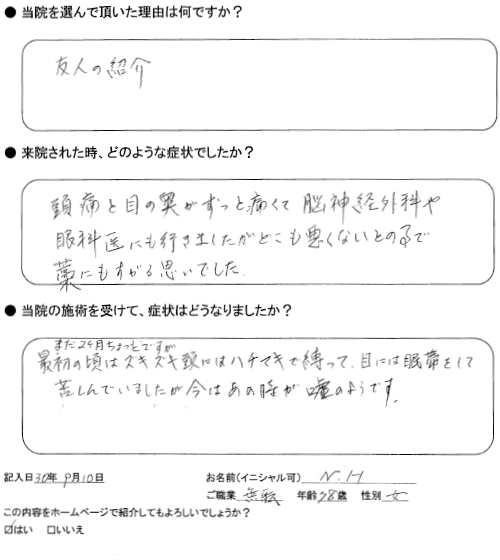 ● 当院を選んで頂いた理由は何ですか？
友人の紹介
● 来院された時、どのような症状でしたか？
頭痛と目の奥がずっと痛くて脳神経外科や
眼科医にも行きましたがどこも悪くないとの事で
藁にもすがる思いでした.
● 当院の施術を受けて、症状はどうなりましたか？
まだ2ヶ月ちょっとですが
最初の頃はズキズキ頭にはハチマキで縛って、目には眼帯をして
苦しんでいましたが今はあの時が嘘のようです。
記入日30年9月10日
お名前(イニシャル可) N.H
ご職業 無職 年齢78歳 性別 女
この内容をホームページで紹介してもよろしいでしょうか？
☑はい □いいえ